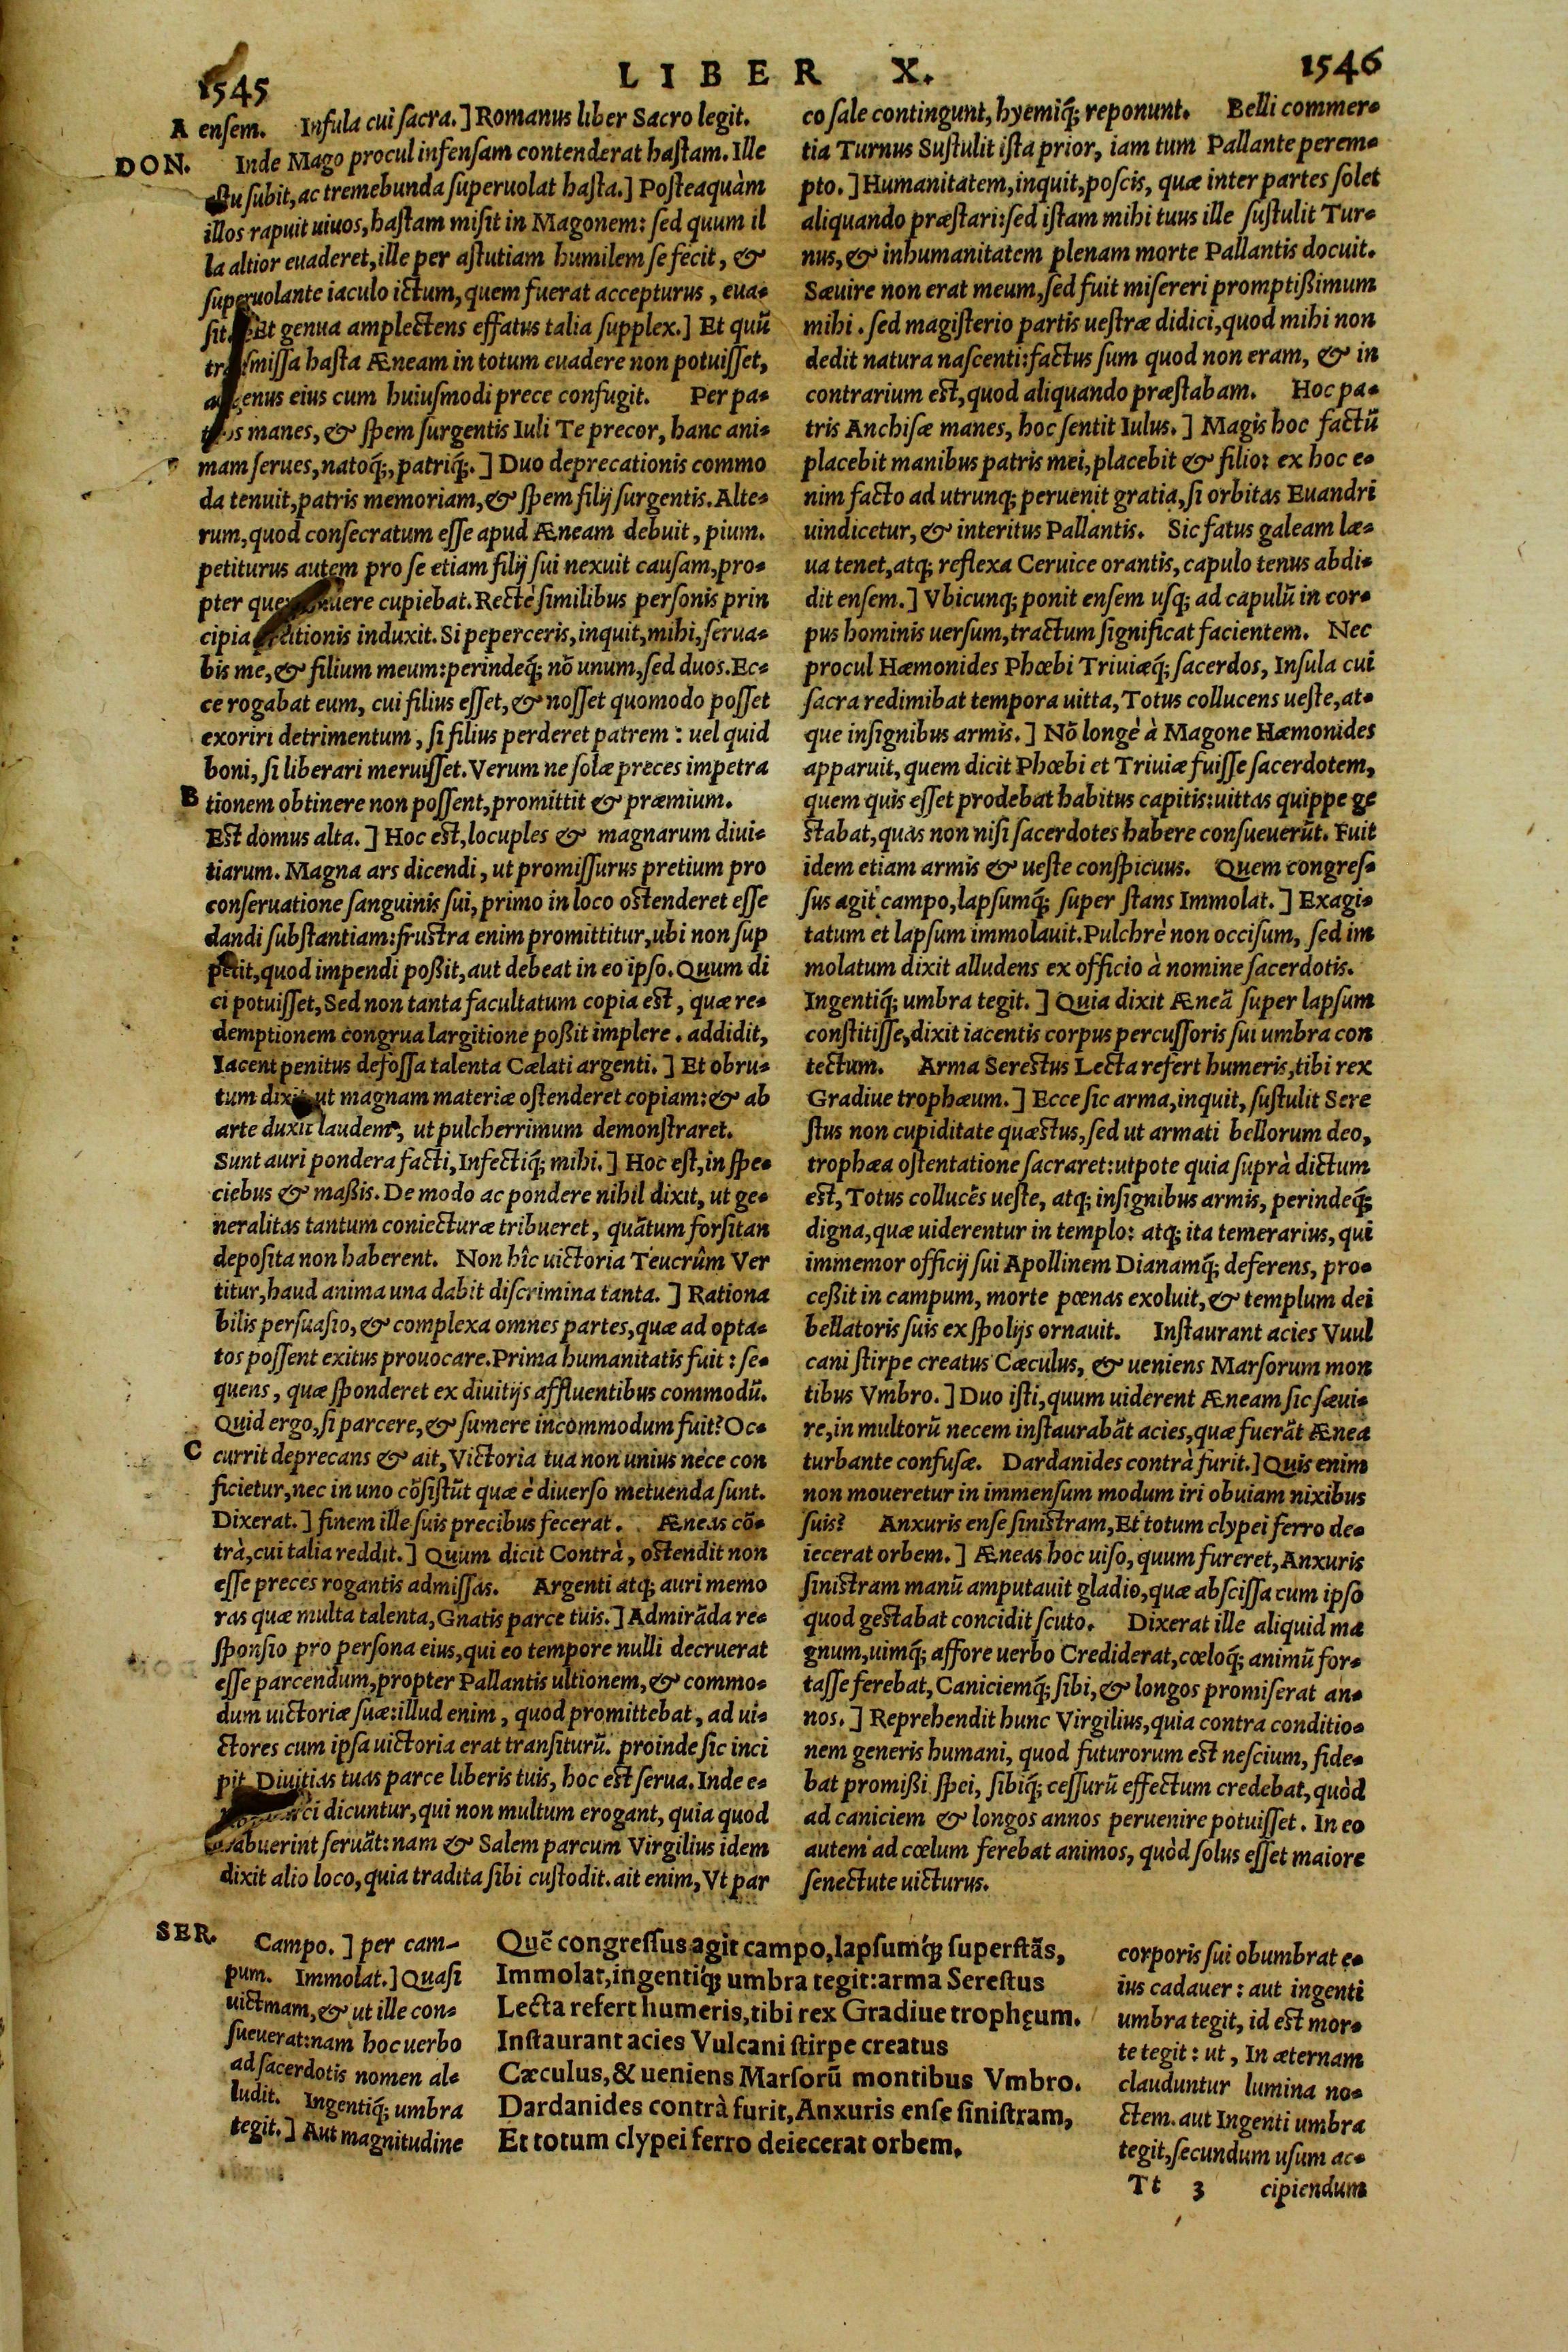 1545
LIBER X.
1546
A
ensem. Insula cui sacra.] Romanus liber Sacro legit.
DON.
Inde Mago procul infensam contenderat hastam. Ille
subit, ac tremebunda superuolat hasta.] Posteaquàm
illos rapuit uiuos, hastam misit in Magonem: sed quum il
la altior euaderet, ille per astutiam humilem se fecit, &
superuolante iaculo ictum, quem fuerat accepturus, eua-
sit. Et genua amplectens effatus talia supplex.] Et quū
missa hasta Æneam in totum euadere non potuisset,
genus eius cum huiusmodi prece confugit. Per pa-
manes, & spem surgentis Iuli Te precor, hanc ani-
mam serues, natoq́;, patriq́;.] Duo deprecationis commo
da tenuit, patris memoriam, & spem filij surgentis. Alte-
rum, quod consecratum esse apud Æneam debuit, pium.
petiturus autem pro se etiam filij sui nexuit causam, pro-
pter cupiebat. Rectè similibus personis prin
cipia induxit. Si peperceris, inquit, mihi, serua-
bis me, & filium meum: perindeq́; nō unum, sed duos. Ec-
ce rogabat eum, cui filius esset, & nosset quomodo posset
exoriri detrimentum, si filius perderet patrem: uel quid
boni, si liberari meruisset. Verum ne solæ preces impetra
B
tionem obtinere non possent, promittit & præmium.
Est domus alta.] Hoc est, locuples & magnarum diui-
tiarum. Magna ars dicendi, ut promissurus pretium pro
conseruatione sanguinis sui, primo in loco ostenderet esse
dandi substantiam: frustra enim promittitur, ubi non sup
petit, quod impendi poßit, aut debeat in eo ipso. Quum di
ci potuisset, Sed non tanta facultatum copia est, quæ re-
demptionem congrua largitione poßit implere. addidit,
Iacent penitus defossa talenta Cælati argenti.] Et obru-
tum dixit, ut magnam materiæ ostenderet copiam: & ab
arte duxit laudem, ut pulcherrimum demonstraret.
Sunt auri pondera facti, Infectiq́; mihi.] Hoc est, in spe-
ciebus & maßis. De modo ac pondere nihil dixit, ut ge-
neralitas tantum coniecturæ tribueret, quātum forsitan
deposita non haberent. Non hîc uictoria Teucrûm Ver
titur, haud anima una dabit discrimina tanta.] Rationa
bilis persuasio, & complexa omnes partes, quæ ad opta-
tos possent exitus prouocare. Prima humanitatis fuit: se-
quens, quæ sponderet ex diuitijs affluentibus commodū.
Quid ergo, si parcere, & sumere incommodum fuit? Oc-
C
currit deprecans & ait, Victoria tua non unius nece con
ficietur, nec in uno cōsistūt quæ è diuerso metuenda sunt.
Dixerat.] finem ille suis precibus fecerat. Æneas cō-
trà, cui talia reddit.] Quum dicit Contrà, ostendit non
esse preces rogantis admissas. Argenti atq; auri memo
ras quæ multa talenta, Gnatis parce tuis.] Admirāda re-
sponsio pro persona eius, qui eo tempore nulli decruerat
esse parcendum, propter Pallantis ultionem, & commo-
dum uictoriæ suæ: illud enim, quod promittebat, ad ui-
ctores cum ipsa uictoria erat transiturū. proinde sic inci
pit Diuitias tuas parce liberis tuis, hoc est serua. Inde e-
dicuntur, qui non multum erogant, quia quod
habuerint seruāt: nam & Salem parcum Virgilius idem
dixit alio loco, quia tradita sibi custodit. ait enim, Vt par
co sale contingunt, hyemiq́; reponunt. Belli commer-
tia Turnus Sustulit ista prior, iam tum Pallante perem-
pto.] Humanitatem, inquit, poscis, quæ inter partes solet
aliquando præstari: sed istam mihi tuus ille sustulit Tur-
nus, & inhumanitatem plenam morte Pallantis docuit.
Sæuire non erat meum, sed fuit misereri promptißimum
mihi. sed magisterio partis uestræ didici, quod mihi non
dedit natura nascenti: factus sum quod non eram, & in
contrarium est, quod aliquando præstabam. Hoc pa-
tris Anchisæ manes, hoc sentit Iulus.] Magis hoc factū
placebit manibus patris mei, placebit & filio: ex hoc e-
nim facto ad utrunq; peruenit gratia, si orbitas Euandri
uindicetur, & interitus Pallantis. Sic fatus galeam læ-
ua tenet, atq; reflexa Ceruice orantis, capulo tenus abdi-
dit ensem.] Vbicunq; ponit ensem usq; ad capulū in cor-
pus hominis uersum, tractum significat facientem. Nec
procul Hæmonides Phœbi Triuiæq́; sacerdos, Insula cui
sacra redimibat tempora uitta, Totus collucens ueste, at-
que insignibus armis.] Nō longè à Magone Hæmonides
apparuit, quem dicit Phœbi et Triuiæ fuisse sacerdotem,
quem quis esset prodebat habitus capitis: uittas quippe ge
stabat, quas non nisi sacerdotes habere consueuerūt. Fuit
idem etiam armis & ueste conspicuus. Quem congres-
sus agit campo, lapsumq́; super stans Immolat.] Exagi-
tatum et lapsum immolauit. Pulchrè non occisum, sed im
molatum dixit alludens ex officio à nomine sacerdotis.
Ingentiq́; umbra tegit.] Quia dixit Æneā super lapsum
constitisse, dixit iacentis corpus percussoris sui umbra con
tectum. Arma Serestus Lecta refert humeris, tibi rex
Gradiue trophæum.] Ecce sic arma, inquit, sustulit Sere
stus non cupiditate quæstus, sed ut armati bellorum deo,
trophæa ostentatione sacraret: utpote quia suprà dictum
est, Totus collucēs ueste, atq; insignibus armis, perindeq́;
digna, quæ uiderentur in templo: atq; ita temerarius, qui
immemor officij sui Apollinem Dianamq́; deferens, pro-
ceßit in campum, morte pœnas exoluit, & templum dei
bellatoris suis ex spolijs ornauit. Instaurant acies Vuul
cani stirpe creatus Cæculus, & ueniens Marsorum mon
tibus Vmbro.] Duo isti, quum uiderent Æneam sic sæui-
re, in multorū necem instaurabāt acies, quæ fuerāt Ænea
turbante confusæ. Dardanides contrà furit.] Quis enim
non moueretur in immensum modum iri obuiam nixibus
suis? Anxuris ense sinistram, Et totum clypei ferro de-
iecerat orbem.] Æneas hoc uiso, quum fureret, Anxuris
sinistram manū amputauit gladio, quæ abscissa cum ipso
quod gestabat concidit scuto. Dixerat ille aliquid ma
gnum, uimq́; affore uerbo Crediderat, cœloq́; animū for-
tasse ferebat, Caniciemq́; sibi, & longos promiserat an-
nos.] Reprehendit hunc Virgilius, quia contra conditio-
nem generis humani, quod futurorum est nescium, fide-
bat promißi spei, sibiq́; cessurū effectum credebat, quòd
ad caniciem & longos annos peruenire potuisset. In eo
autem ad cœlum ferebat animos, quòd solus esset maiore
senectute uicturus.
SER.
Campo.] per cam-
pum. Immolat.] Quasi
uictmam, & ut ille con-
sueuerat: nam hoc uerbo
ad sacerdotis nomen al-
ludit. Ingentiq́; umbra
tegit.] Aut magnitudine
Quē congressus agit campo, lapsumq́; superstās,
Immolat, ingentiq́; umbra tegit: arma Serestus
Lecta refert humeris, tibi rex Gradiue trophęum.
Instaurant acies Vulcani stirpe creatus
Cæculus, & ueniens Marsorū montibus Vmbro.
Dardanides contrà furit, Anxuris ense sinistram,
Et totum clypei ferro deiecerat orbem.
corporis sui obumbrat e-
ius cadauer: aut ingenti
umbra tegit, id est mor-
te tegit: ut, In æternam
clauduntur lumina no-
ctem. aut Ingenti umbra
tegit, secundum usum ac-
Tt 3 cipiendum